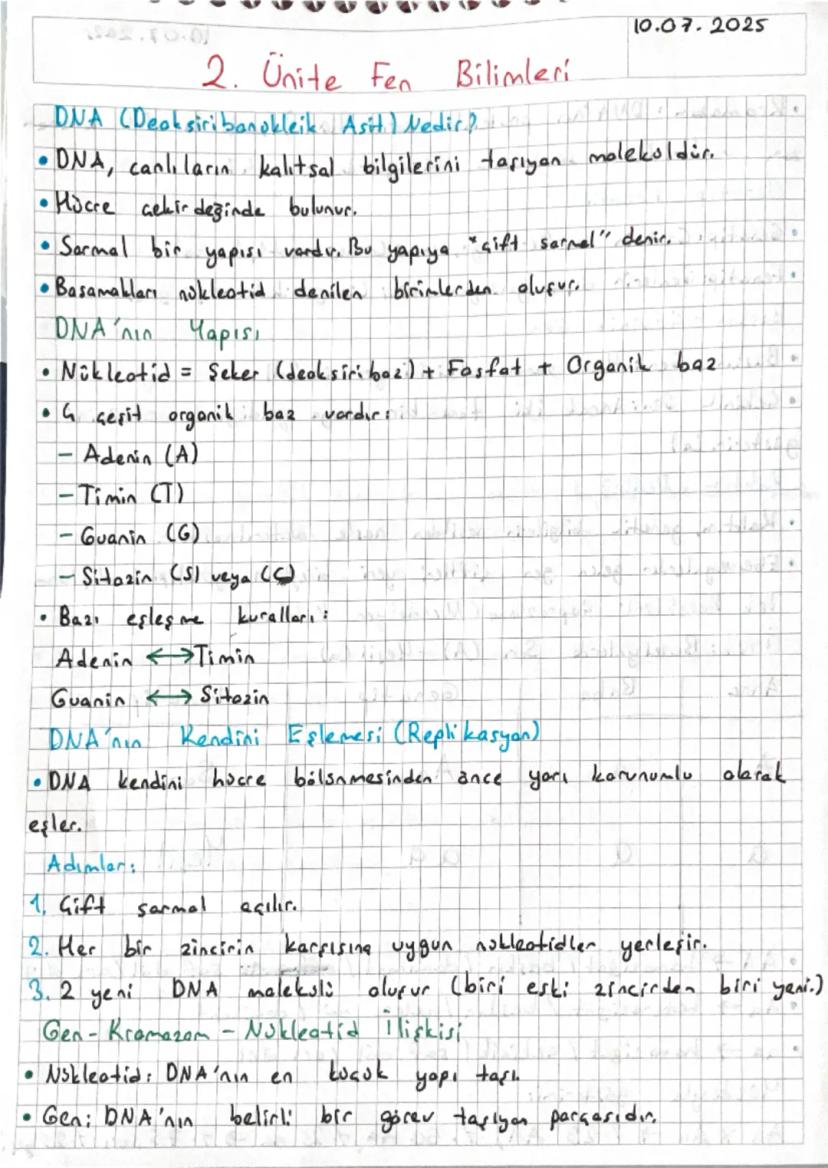 10.07.2025
2. Ünite Fen Bilimleri
DNA (Deoksiribonükleik Asit) Nedir?
• DNA, canlıların kalıtsal bilgilerini taşıyan moleküldür.
• Hücre çekirdeğinde bulunur.
• Sarmal bir yapısı vardır. Bu yapıya "çift sarmal" denir.
• Basamakları nükleotid denilen birimlerden oluşur.
DNA'nın Yapısı
• Nükleotid = Şeker (deoksiriboz) + Fosfat + Organik baz
• 4 çeşit organik baz vardır:
– Adenin (A)
– Timin (T)
– Guanin (G)
– Sitozin (S) veya (C)
• Bazı eşleşme kuralları:
Adenin ↔ Timin
Guanin ↔ Sitozin
DNA'nın Kendini Eşlemesi (Replikasyon)
• DNA kendini hücre bölünmesinden önce yarı korunumlu olarak
eşler.
Adımlar:
1. Çift sarmal açılır.
2. Her bir zincirin karşısına uygun nükleotidler yerleşir.
3. 2 yeni DNA molekülü oluşur (biri eski zincirden biri yeni.)
Gen - Kromozom - Nükleotid İlişkisi
• Nükleotid: DNA'nın en küçük yapı taşı.
• Gen: DNA'nın belirli bir görev taşıyan parçasıdır.